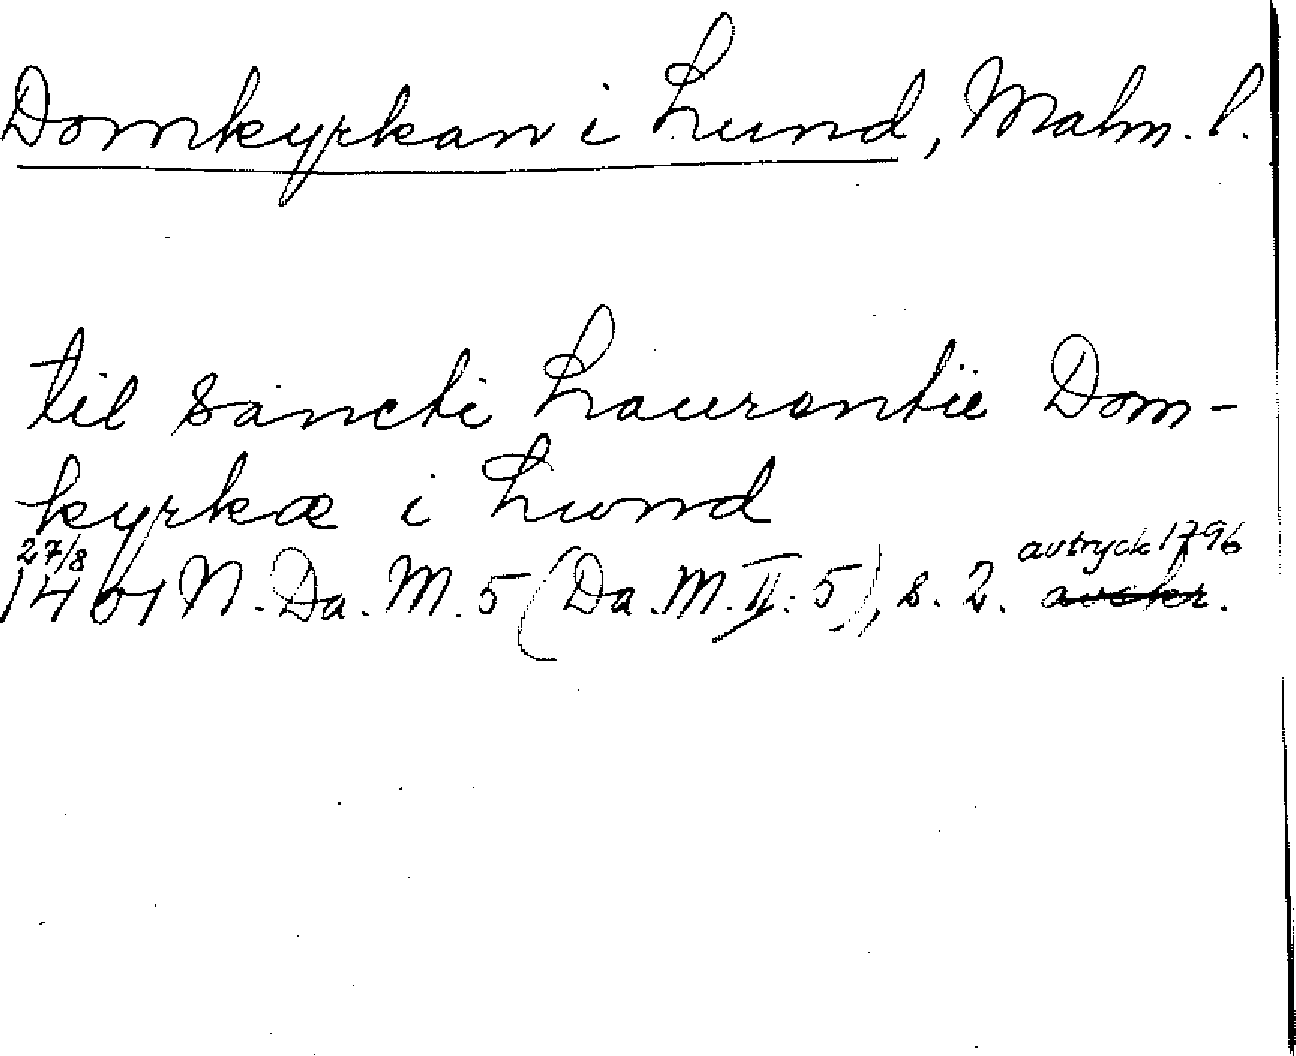 Domkyrkan i Lund, Malm. l.
til Sancti Laurentii Dom-
kyrkæ i Lund
27/8 avtryck 1796
1461 N. Da. M. 5 (Da. M. II: 5), s. 2. avskr.